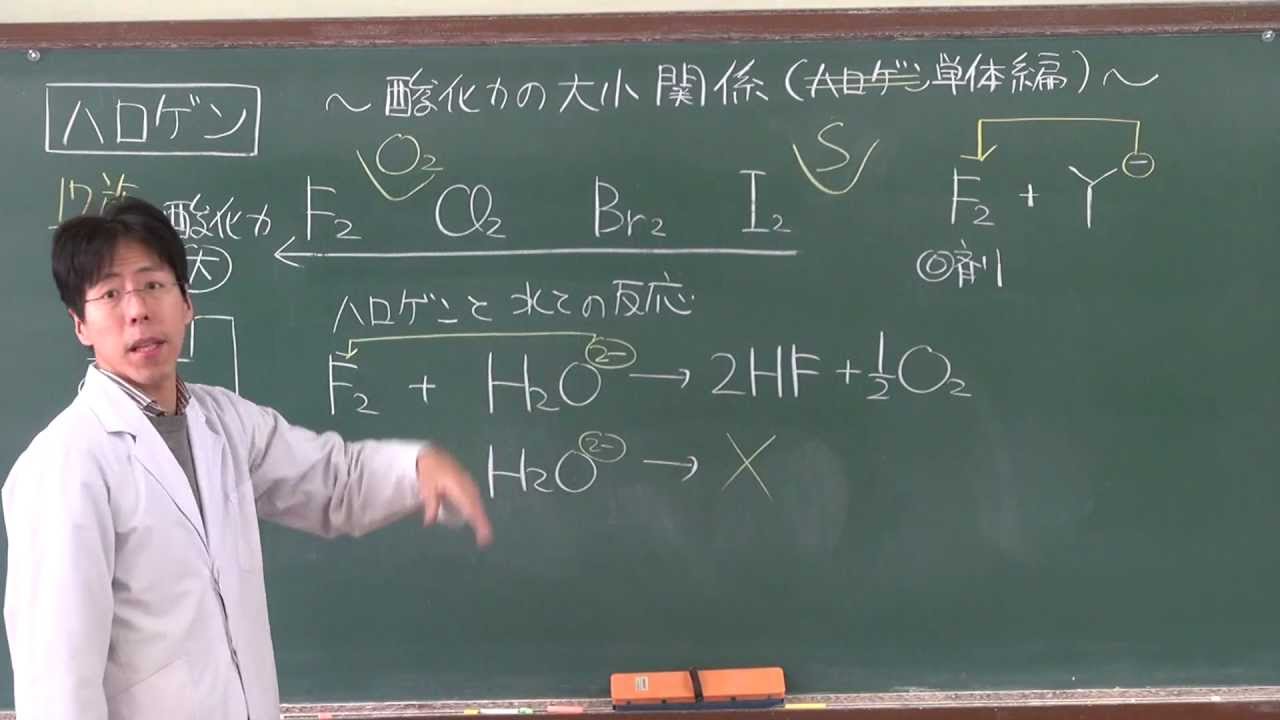 ハロゲン
～酸化力の大小関係(ハロゲン単体編)～
17族
酸化力
大
O₂
S
F₂ Cl₂ Br₂ I₂
F₂ + Y⁻
◎剤
ハロゲンと水との反応
F₂ + H₂O²⁻ → 2HF + ½O₂
H₂O²⁻ → X